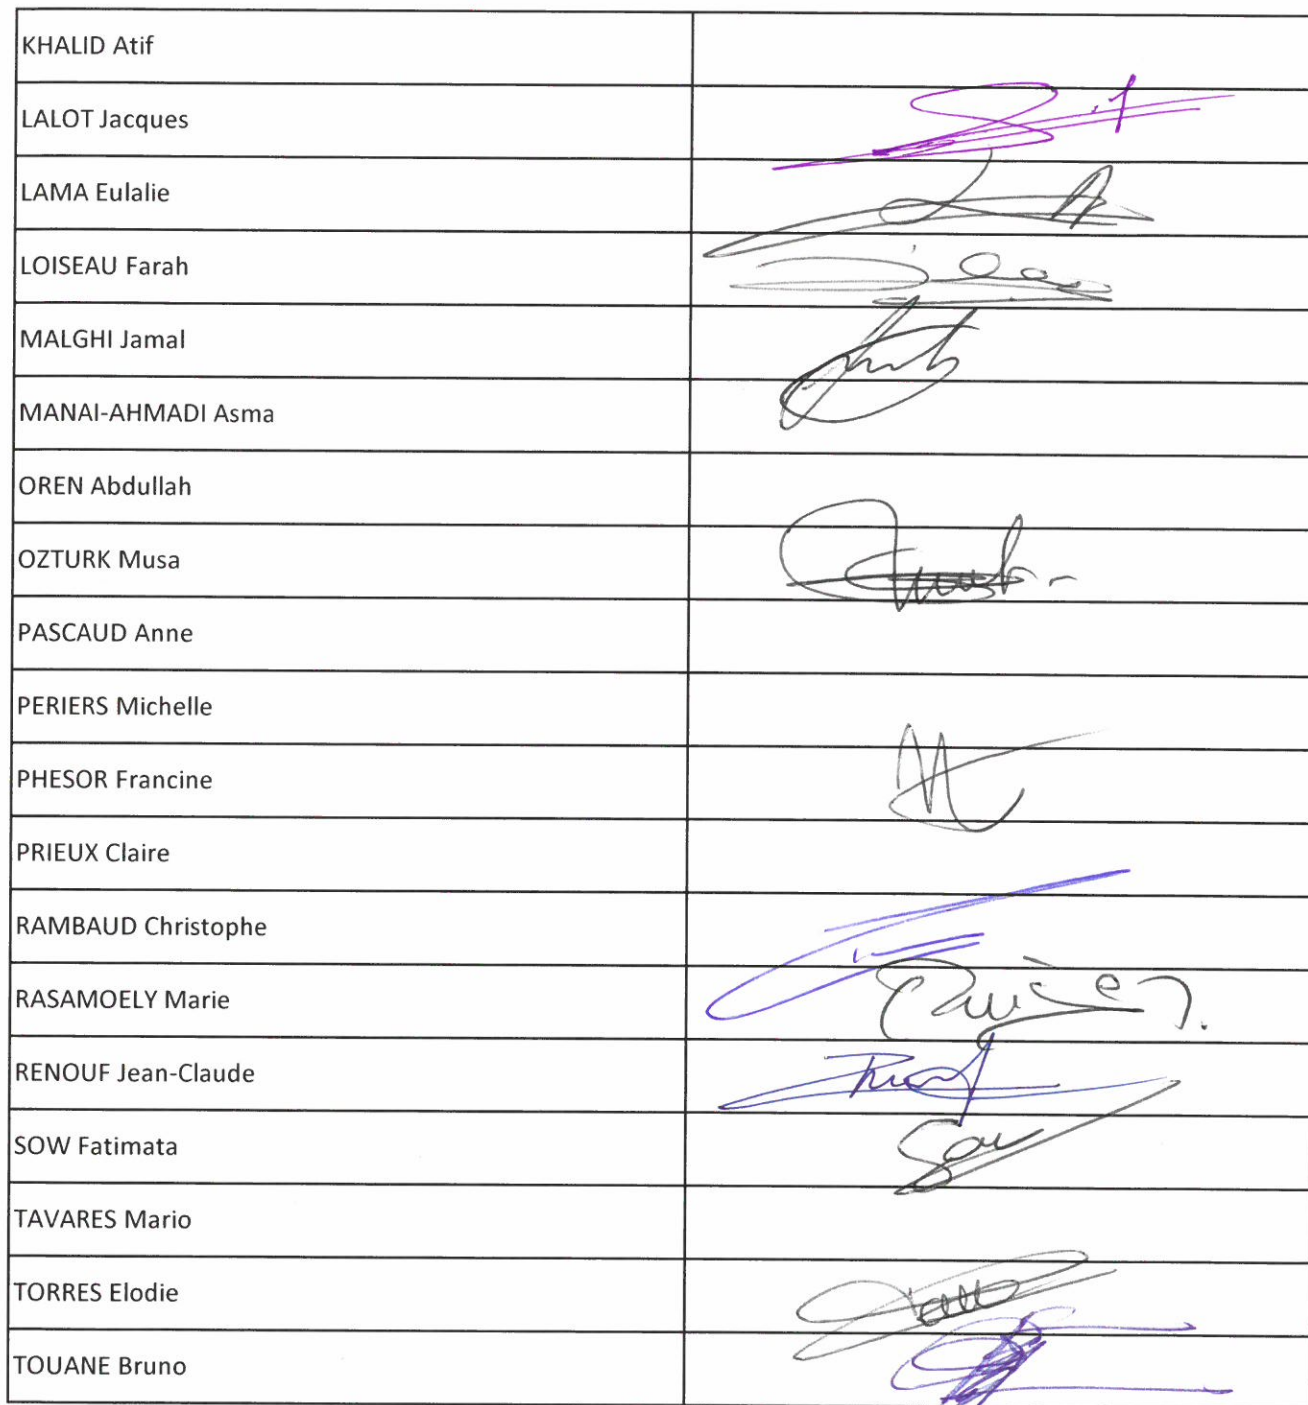 KHALID Atif
LALOT Jacques
LAMA Eulalie
LOISEAU Farah
MALGHI Jamal
MANAI-AHMADI Asma
OREN Abdullah
OZTURK Musa
PASCAUD Anne
PERIERS Michelle
PHESOR Francine
PRIEUX Claire
RAMBAUD Christophe
RASAMOELY Marie
RENOUF Jean-Claude
SOW Fatimata
Sow
TAVARES Mario
TORRES Elodie
TOUANE Bruno